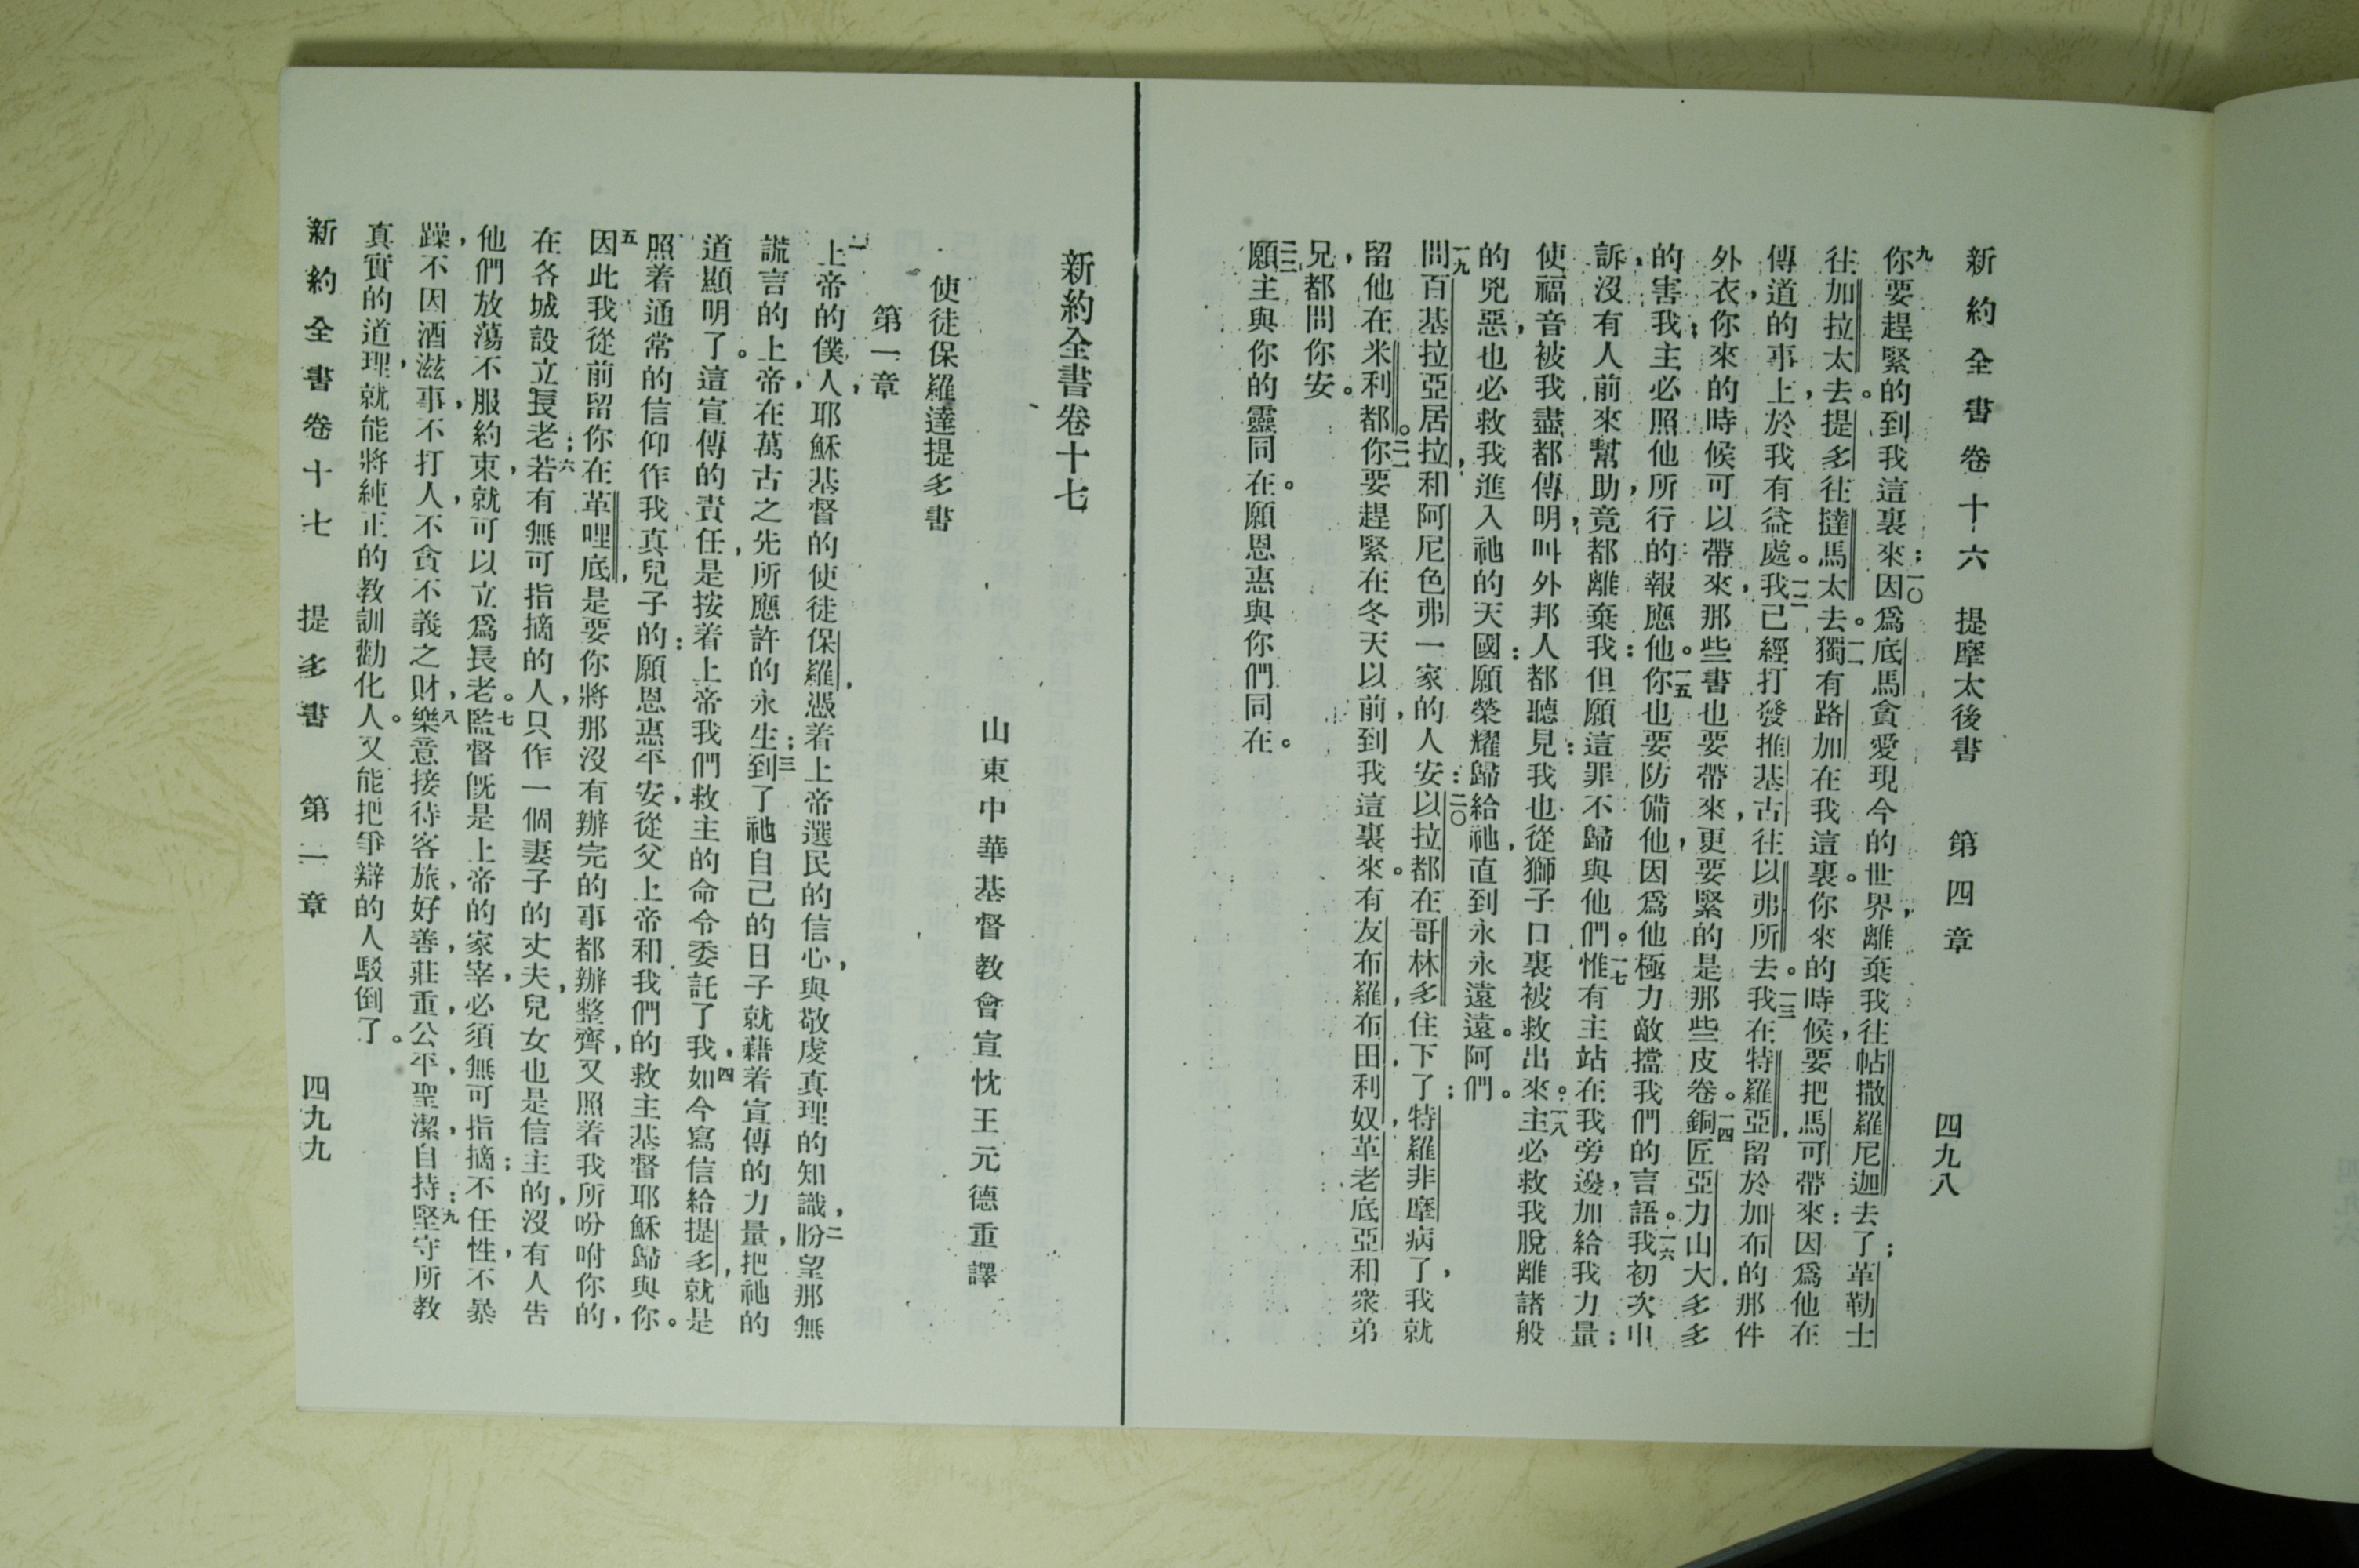 新約全書卷十六 提摩太後書 第四章 四九八
九你要趕緊的到我這裏來；一〇因爲底馬貪愛現今的世界，離棄我往帖撒羅尼迦去了；革勒士
往加拉太去。提多往撻馬太去。一一獨有路加在我這裏。你來的時候，要把馬可帶來：因爲他在
傳道的事上，於我有益處。一二我已經打發推基古，往以弗所去。一三我在特羅亞，留於加布的那件
外衣，你來的時候可以帶來，那些書也要帶來，更要緊的是那些皮卷。一四銅匠亞力山大，多多
的害我；主必照他所行的報應他。一五你也要防備他，因爲他極力敵擋我們的言語。一六我初次申
訴，沒有人前來幫助，竟都離棄我：但願這罪不歸與他們。一七惟有主站在我旁邊，加給我力量；
使福音被我盡都傳明，叫外邦人都聽見：我也從獅子口裏被救出來。一八主必救我脫離諸般
的兇惡，也必救我進入祂的天國：願榮耀歸給祂，直到永永遠遠。阿們。
一九問百基拉亞居拉，和阿尼色弗一家的人安：二〇以拉都在哥林多住下了；特羅非摩病了，我就
留他在米利都。二一你要趕緊在冬天以前，到我這裏來。有友布羅，布田利，奴革，老底亞和衆弟
兄，都問你安。
二二願主與你的靈同在。願恩惠與你們同在。
新約全書卷十七
山東中華基督教會宣忱王元德重譯
使徒保羅達提多書
第一章
一上帝的僕人，耶穌基督的使徒保羅，憑着上帝選民的信心，與敬虔真理的知識，二盼望那無
謊言的上帝，在萬古之先所應許的永生；三到了祂自己的日子就藉着宣傳的力量，把祂的
道顯明了。這宣傳的責任，是按着上帝我們救主的命令委託了我，四如今寫信給提多，就是
照着通常的信仰作我真兒子的：願恩惠平安，從父上帝和我們的救主基督耶穌歸與你。
五因此我從前留你在革哩底，是要你將那沒有辦完的事都辦整齊，又照着我所吩咐你的，
在各城設立長老；六若有無可指摘的人，只作一個妻子的丈夫，兒女也是信主的，沒有人告
他們放蕩不服約束，就可以立爲長老。七監督旣是上帝的家宰，必須無可指摘；不任性，不暴
躁，不因酒滋事，不打人，不貪不義之財，八樂意接待客旅，好善，莊重，公平，聖潔，自持：九堅守所教
真實的道理，就能將純正的教訓勸化人。又能把爭辯的人駁倒了。
新約全書卷十七 提多書 第一章 四九九